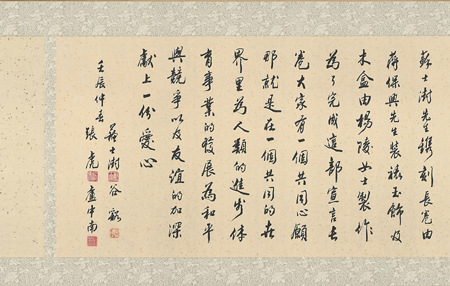 蘇士澍先生鐫刻長卷由
蔣保興先生裝裱玉飾及
木盒由楊陵女士製作
為了完成這部宣言長
卷大家有一個共同心願
那就是在一個共同的世
界里為人類的進步体
育事業的發展為和平
與競爭以及友誼的加深
獻上一份愛心
壬辰仲春
蘇士澍 谷谿
張虎 盧中南